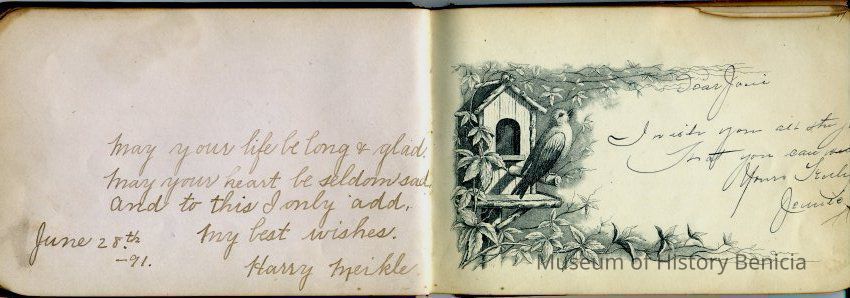 May your life be long & glad.
May your heart be seldom sad,
And to this I only add,
My best wishes.
June 28th
-91.
Harry Meikle.
Dear
I wish you all the
that you can
Yours Truly
Jennie
Museum of History Benicia